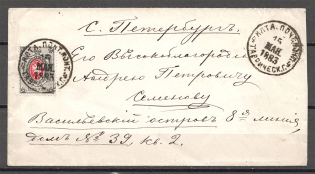 С. Петербургъ.
Его Высокоблагородію
Андрею Петровичу
Семенову
Васильевскій островъ 8я линія,
домъ № 39, кв. 2.
ПОЧТОВ.
15
МАЯ
1883
МАЯ
1883